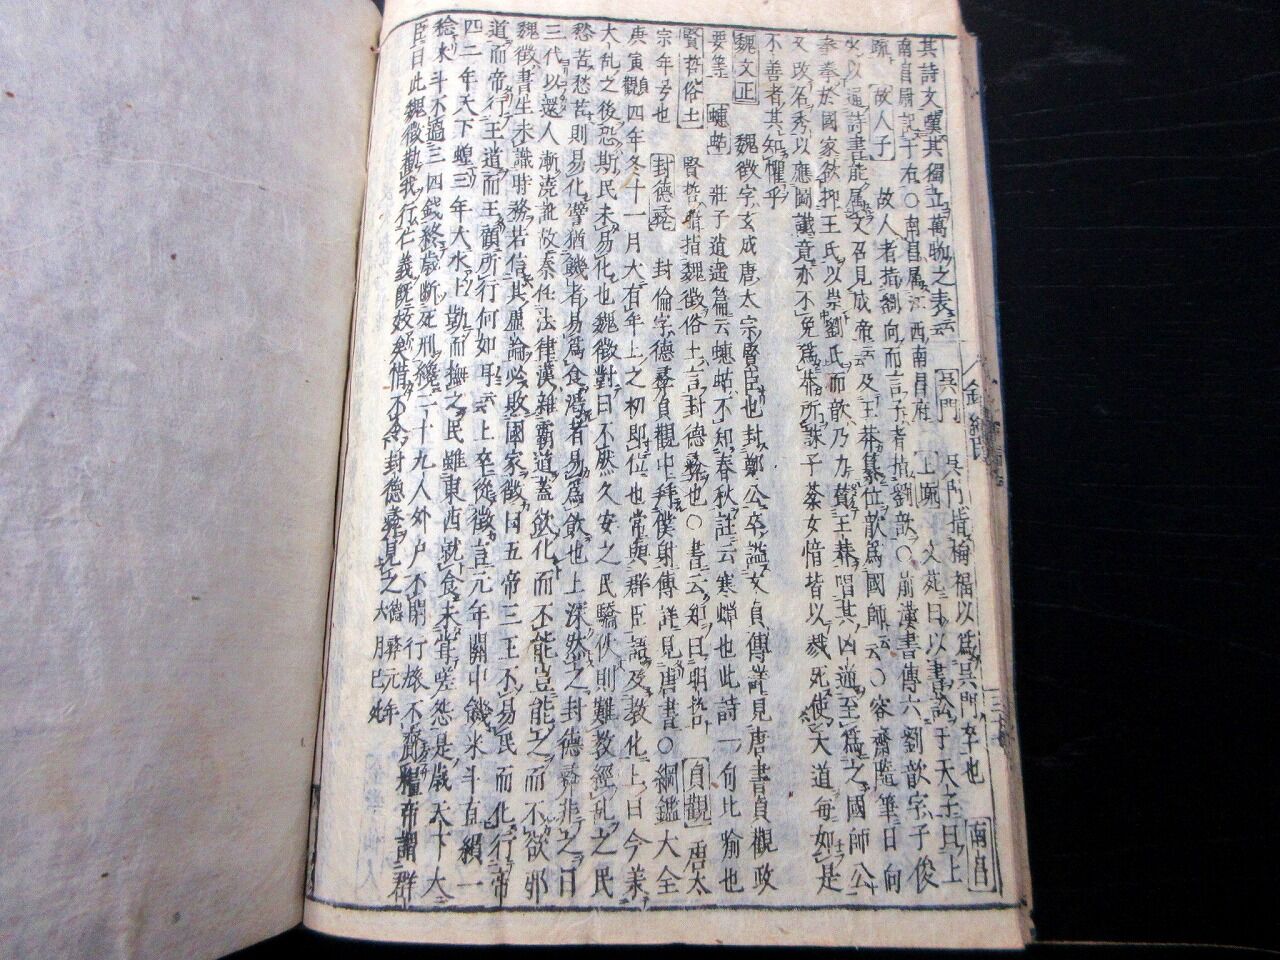 其詩文冀其獨立萬物之表云 吳門 吳門指梅福以爲吳門卒也 南昌
南自屑 于右○南昌属江西南昌府 上 文苑曰以書 于天子且上
疏 故人子 故人者指劉向而言子者指劉歆○前漢書傳六劉歆字子俊
少以通詩書能属文召見成帝云云及王莽簒位歆爲國師云云○容齋隨筆曰向
拳拳於國家欲抑王氏以崇劉氏而歆乃力賛王莽唱其凶逆至爲之國師公
又改名秀以應圖讖竟亦不免爲莽所誅子棻女愔皆以戮死使天道每如是
不善者其知懼乎
魏文正 魏徴字玄成唐太宗賢臣也封鄭公卒謚文貞傳詳見唐書貞觀政
要等 蟪蛄 莊子逍遥篇云蟪蛄不知春秋註云寒蟬也此詩一句比喻也
賢哲俗士 賢哲者指魏徴俗士言封德彝也○書云知曰明哲 貞觀 唐太
宗年号也 封德彝 封倫字德彝貞觀中拜僕射傳詳見唐書○綱鑑大全
庚寅貞觀四年冬十一月大有年上之初即位也常與群臣語及教化上曰今業
大乱之後恐斯民未易化也魏徴對曰不然久安之民驕佚則難教經乱之民
愁苦愁苦則易化譬猶飢者易爲食渴者易爲飲也上深然之封德彝非之曰
三代以還人漸澆訛故秦任法律漢雜霸道蓋欲化而不能豈能之而不欲邪
魏徴書生未識時務若信其虚論必敗國家徴曰五帝三王不易民而化行帝
道而帝行王道而王顧所行何如耳云云上卒從徴言元年關中饑米斗直絹一
四二年天下蝗三年大水上勤而撫之民雖東西就食未甞嗟怨是歳天下大
稔米斗不過三四錢終歳斷死刑纔二十九人外戶不閉行旅不齎糧帝謂群
臣曰此魏徴勸我行仁義既效矣惜不令封德彝見之